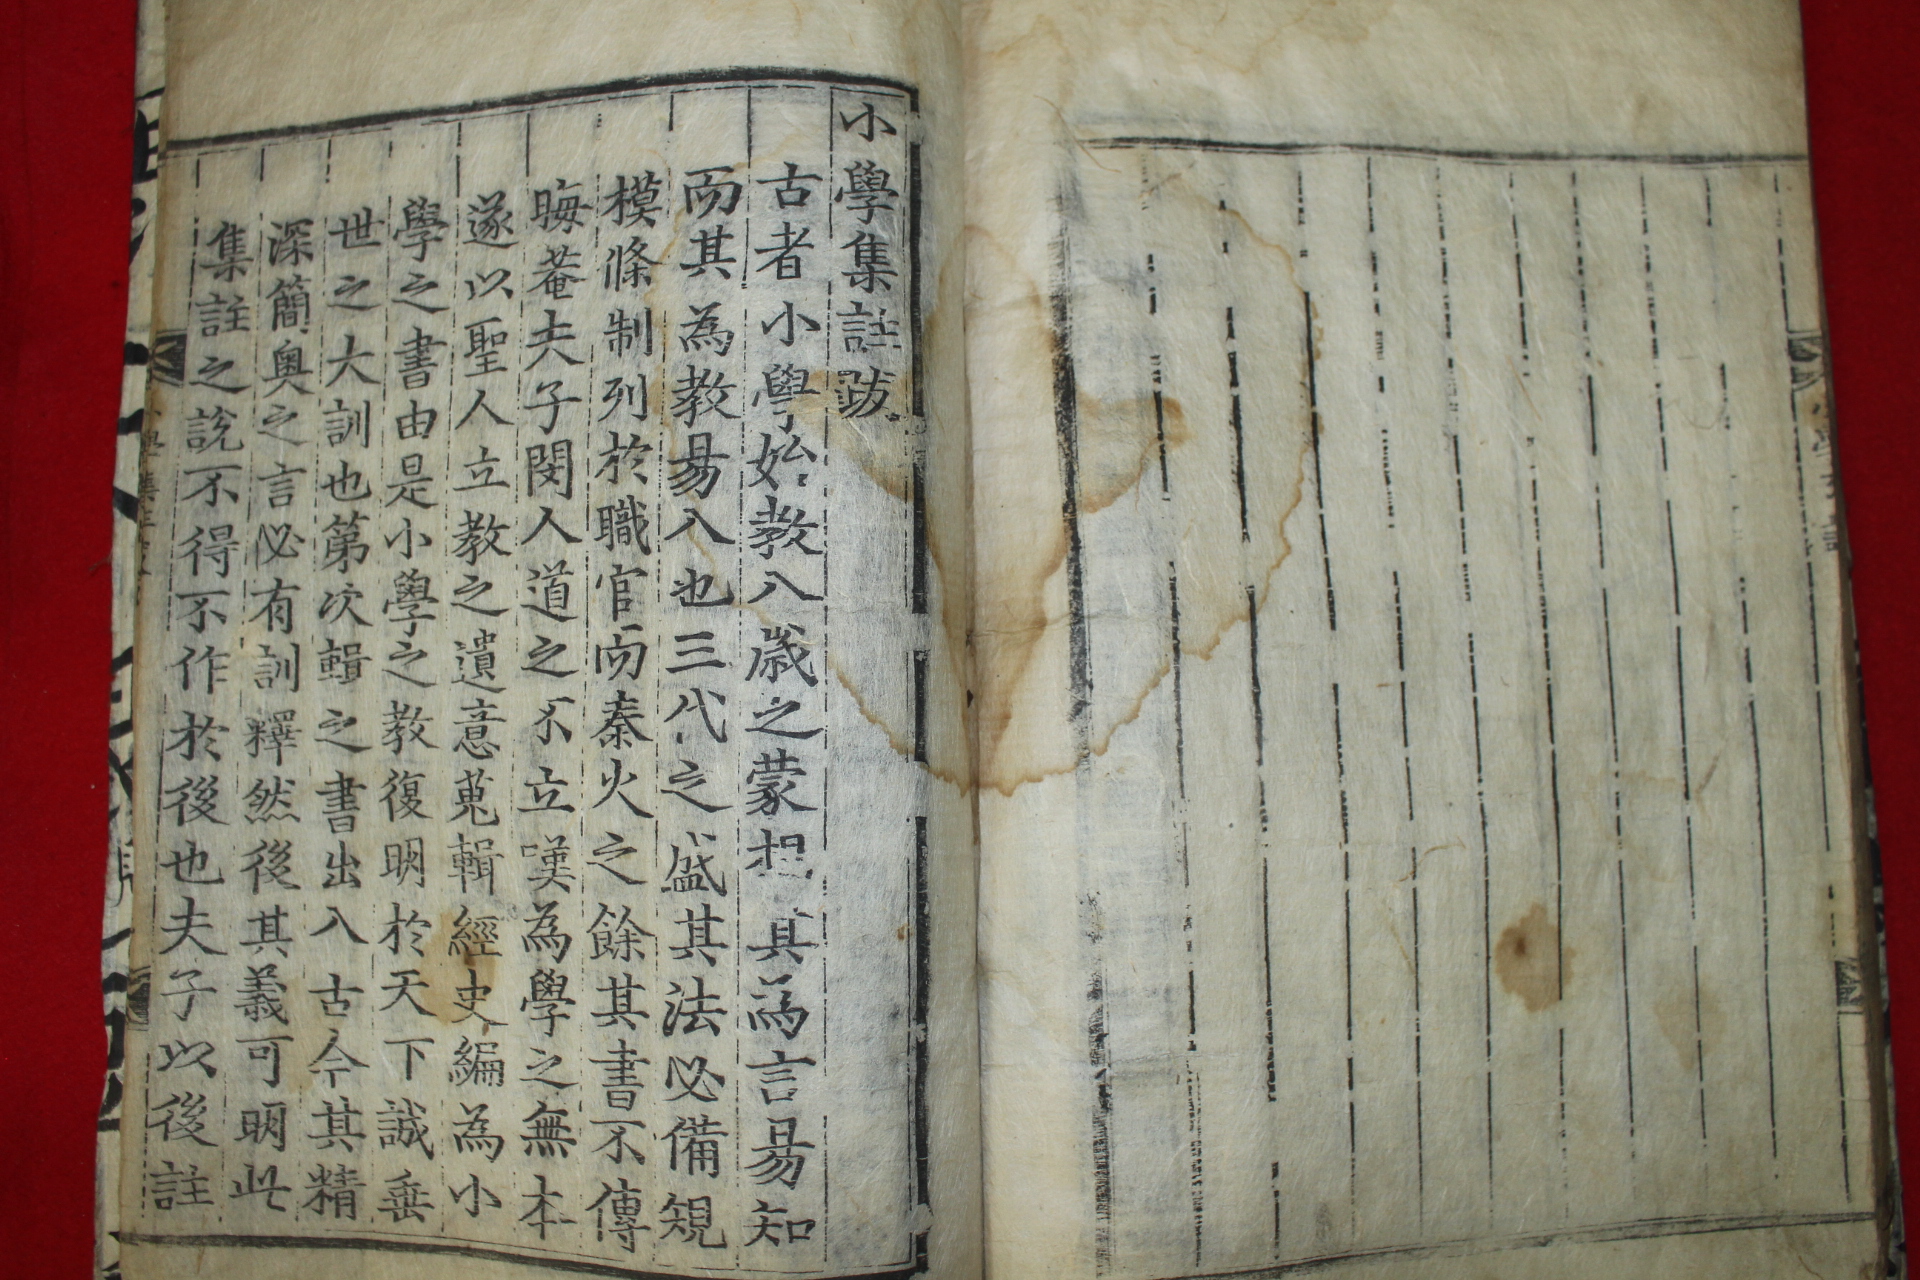 小學集註跋
古者小學始教八歲之蒙想其為言易知
而其為教易入也三代之盛其法必備規
模條制列於職官而秦火之餘其書不傳
晦菴夫子閔人道之不立嘆為學之無本
遂以聖人立教之遺意蒐輯經史編為小
學之書由是小學之教復明於天下誠垂
世之大訓也第次輯之書出入古今其精
深簡奧之言必有訓釋然後其義可明此
集註之說不得不作於後也夫子以後註